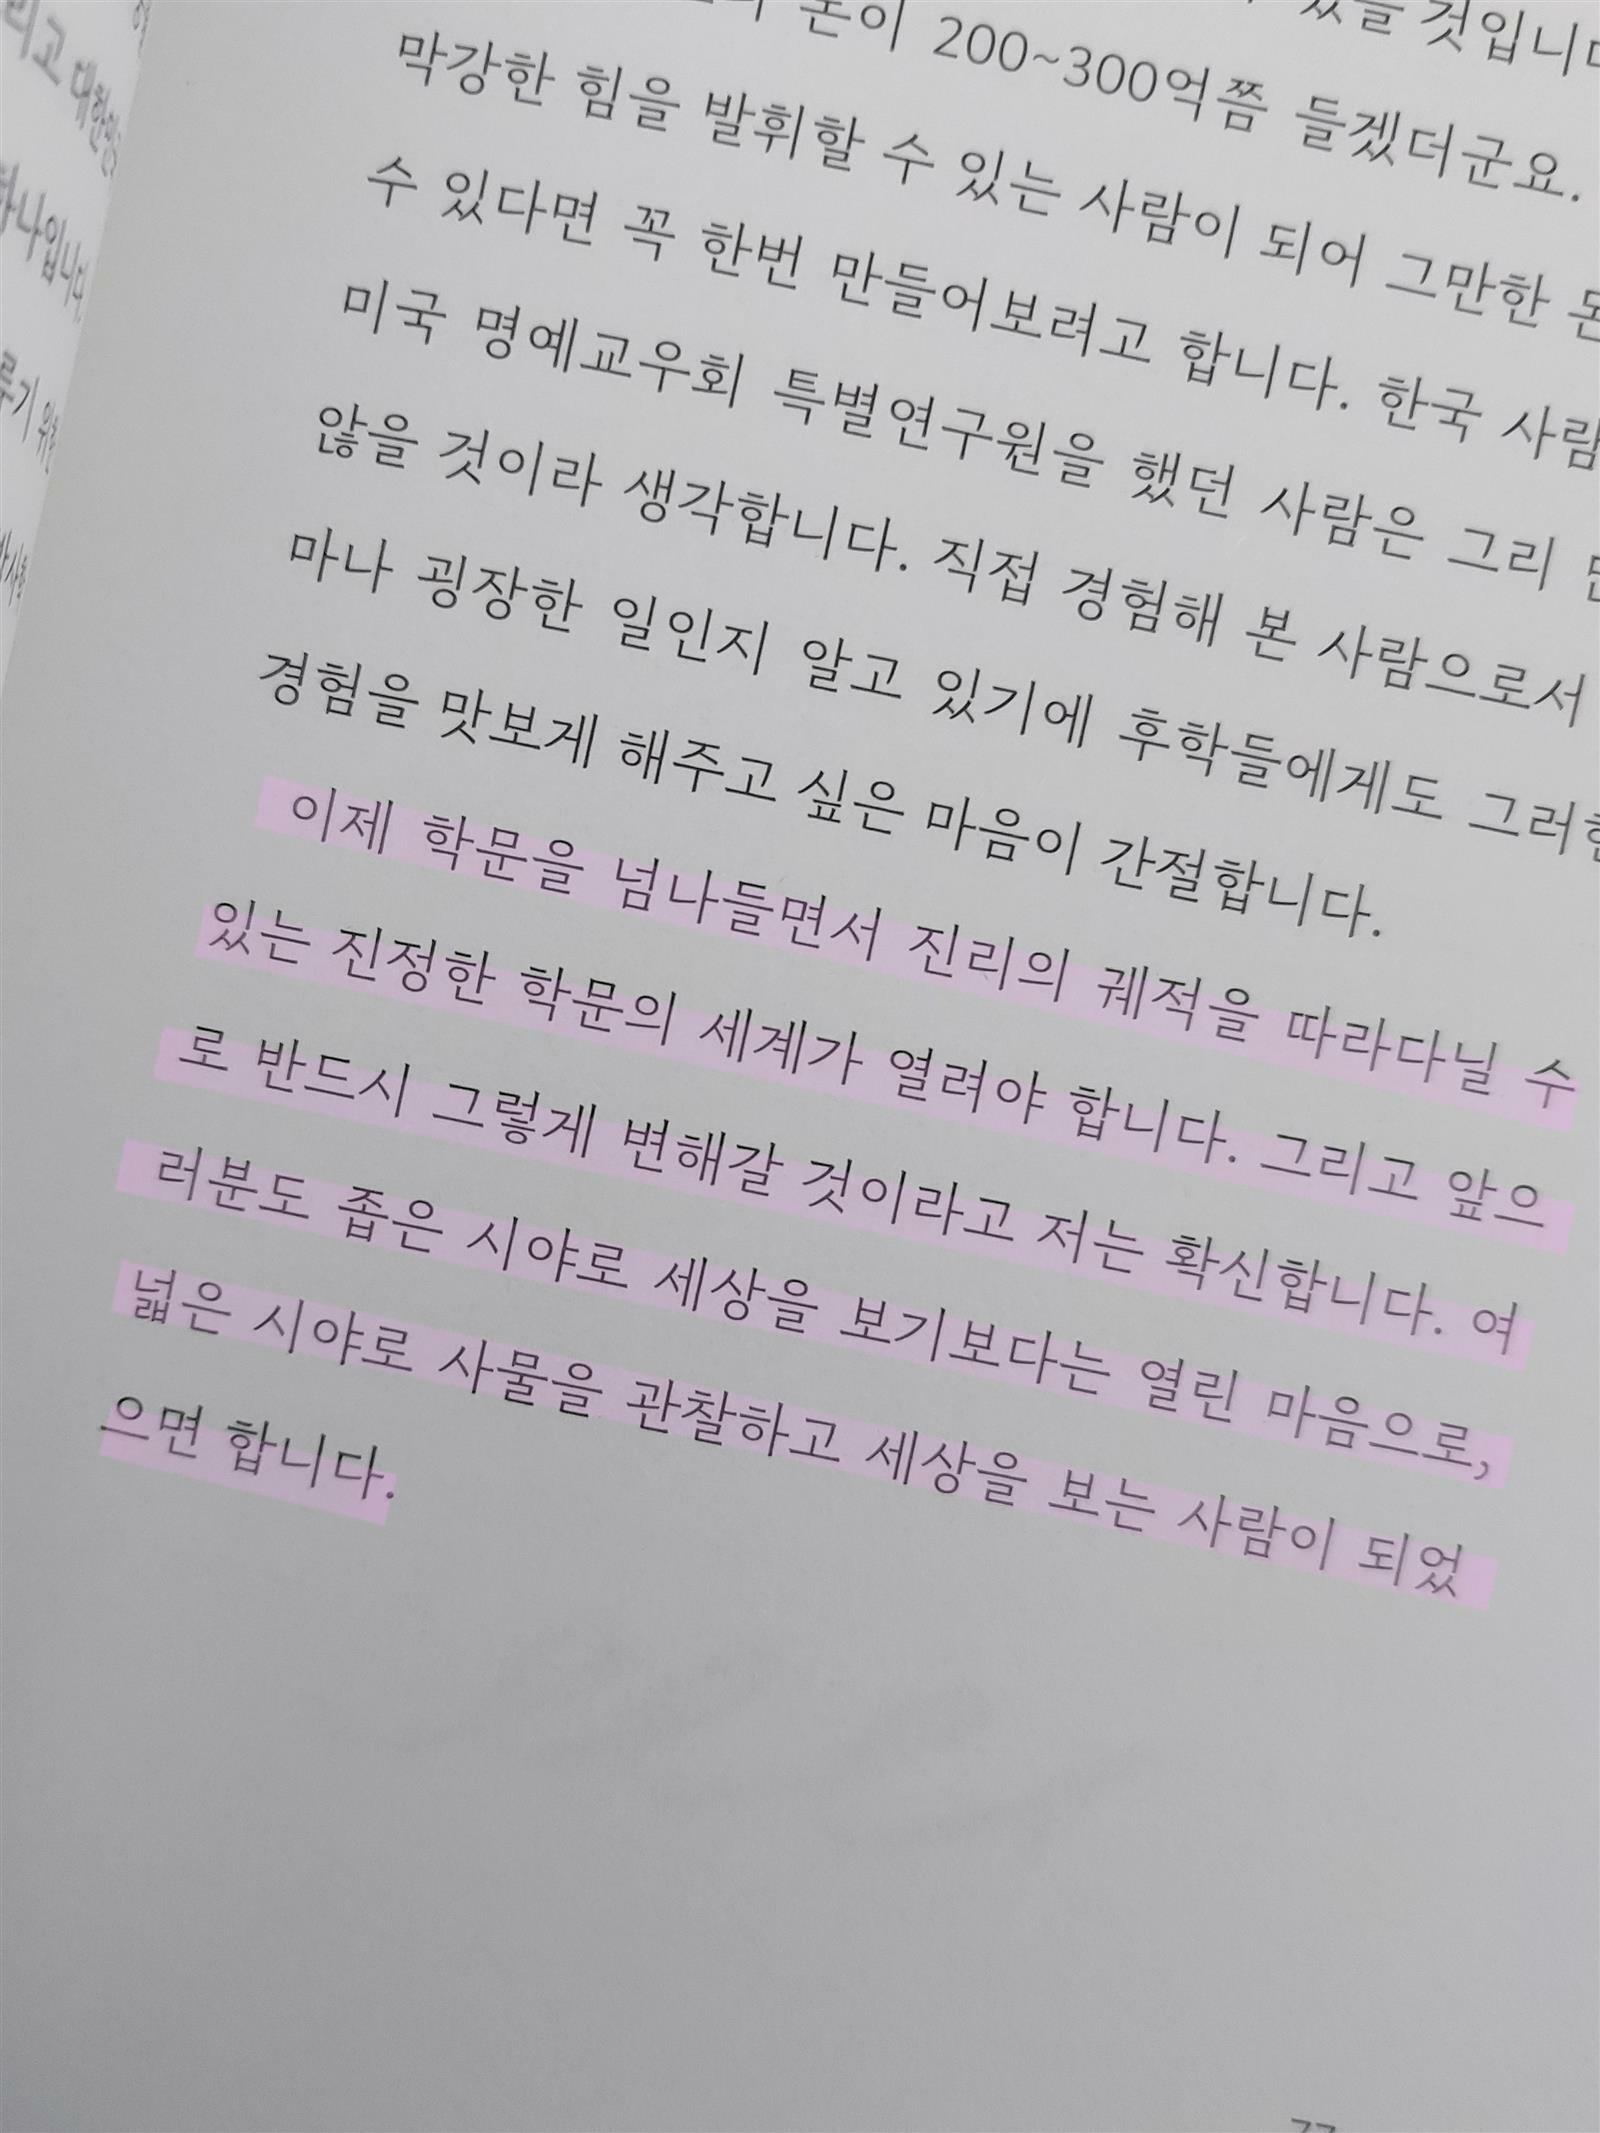 리고 대한
하나입니다
있을 것입니다
돈이 200~300억쯤 들겠더군요.
막강한 힘을 발휘할 수 있는 사람이 되어 그만한
수 있다면 꼭 한번 만들어보려고 합니다. 한국 사람
미국 명예교우회 특별연구원을 했던 사람은 그리
않을 것이라 생각합니다. 직접 경험해 본 사람으로서
마나 굉장한 일인지 알고 있기에 후학들에게도 그러한
경험을 맛보게 해주고 싶은 마음이 간절합니다.
이제 학문을 넘나들면서 진리의 궤적을 따라다닐 수
있는 진정한 학문의 세계가 열려야 합니다. 그리고 앞으
로 반드시 그렇게 변해갈 것이라고 저는 확신합니다. 여
러분도 좁은 시야로 세상을 보기보다는 열린 마음으로,
넓은 시야로 사물을 관찰하고 세상을 보는 사람이 되었
으면 합니다.